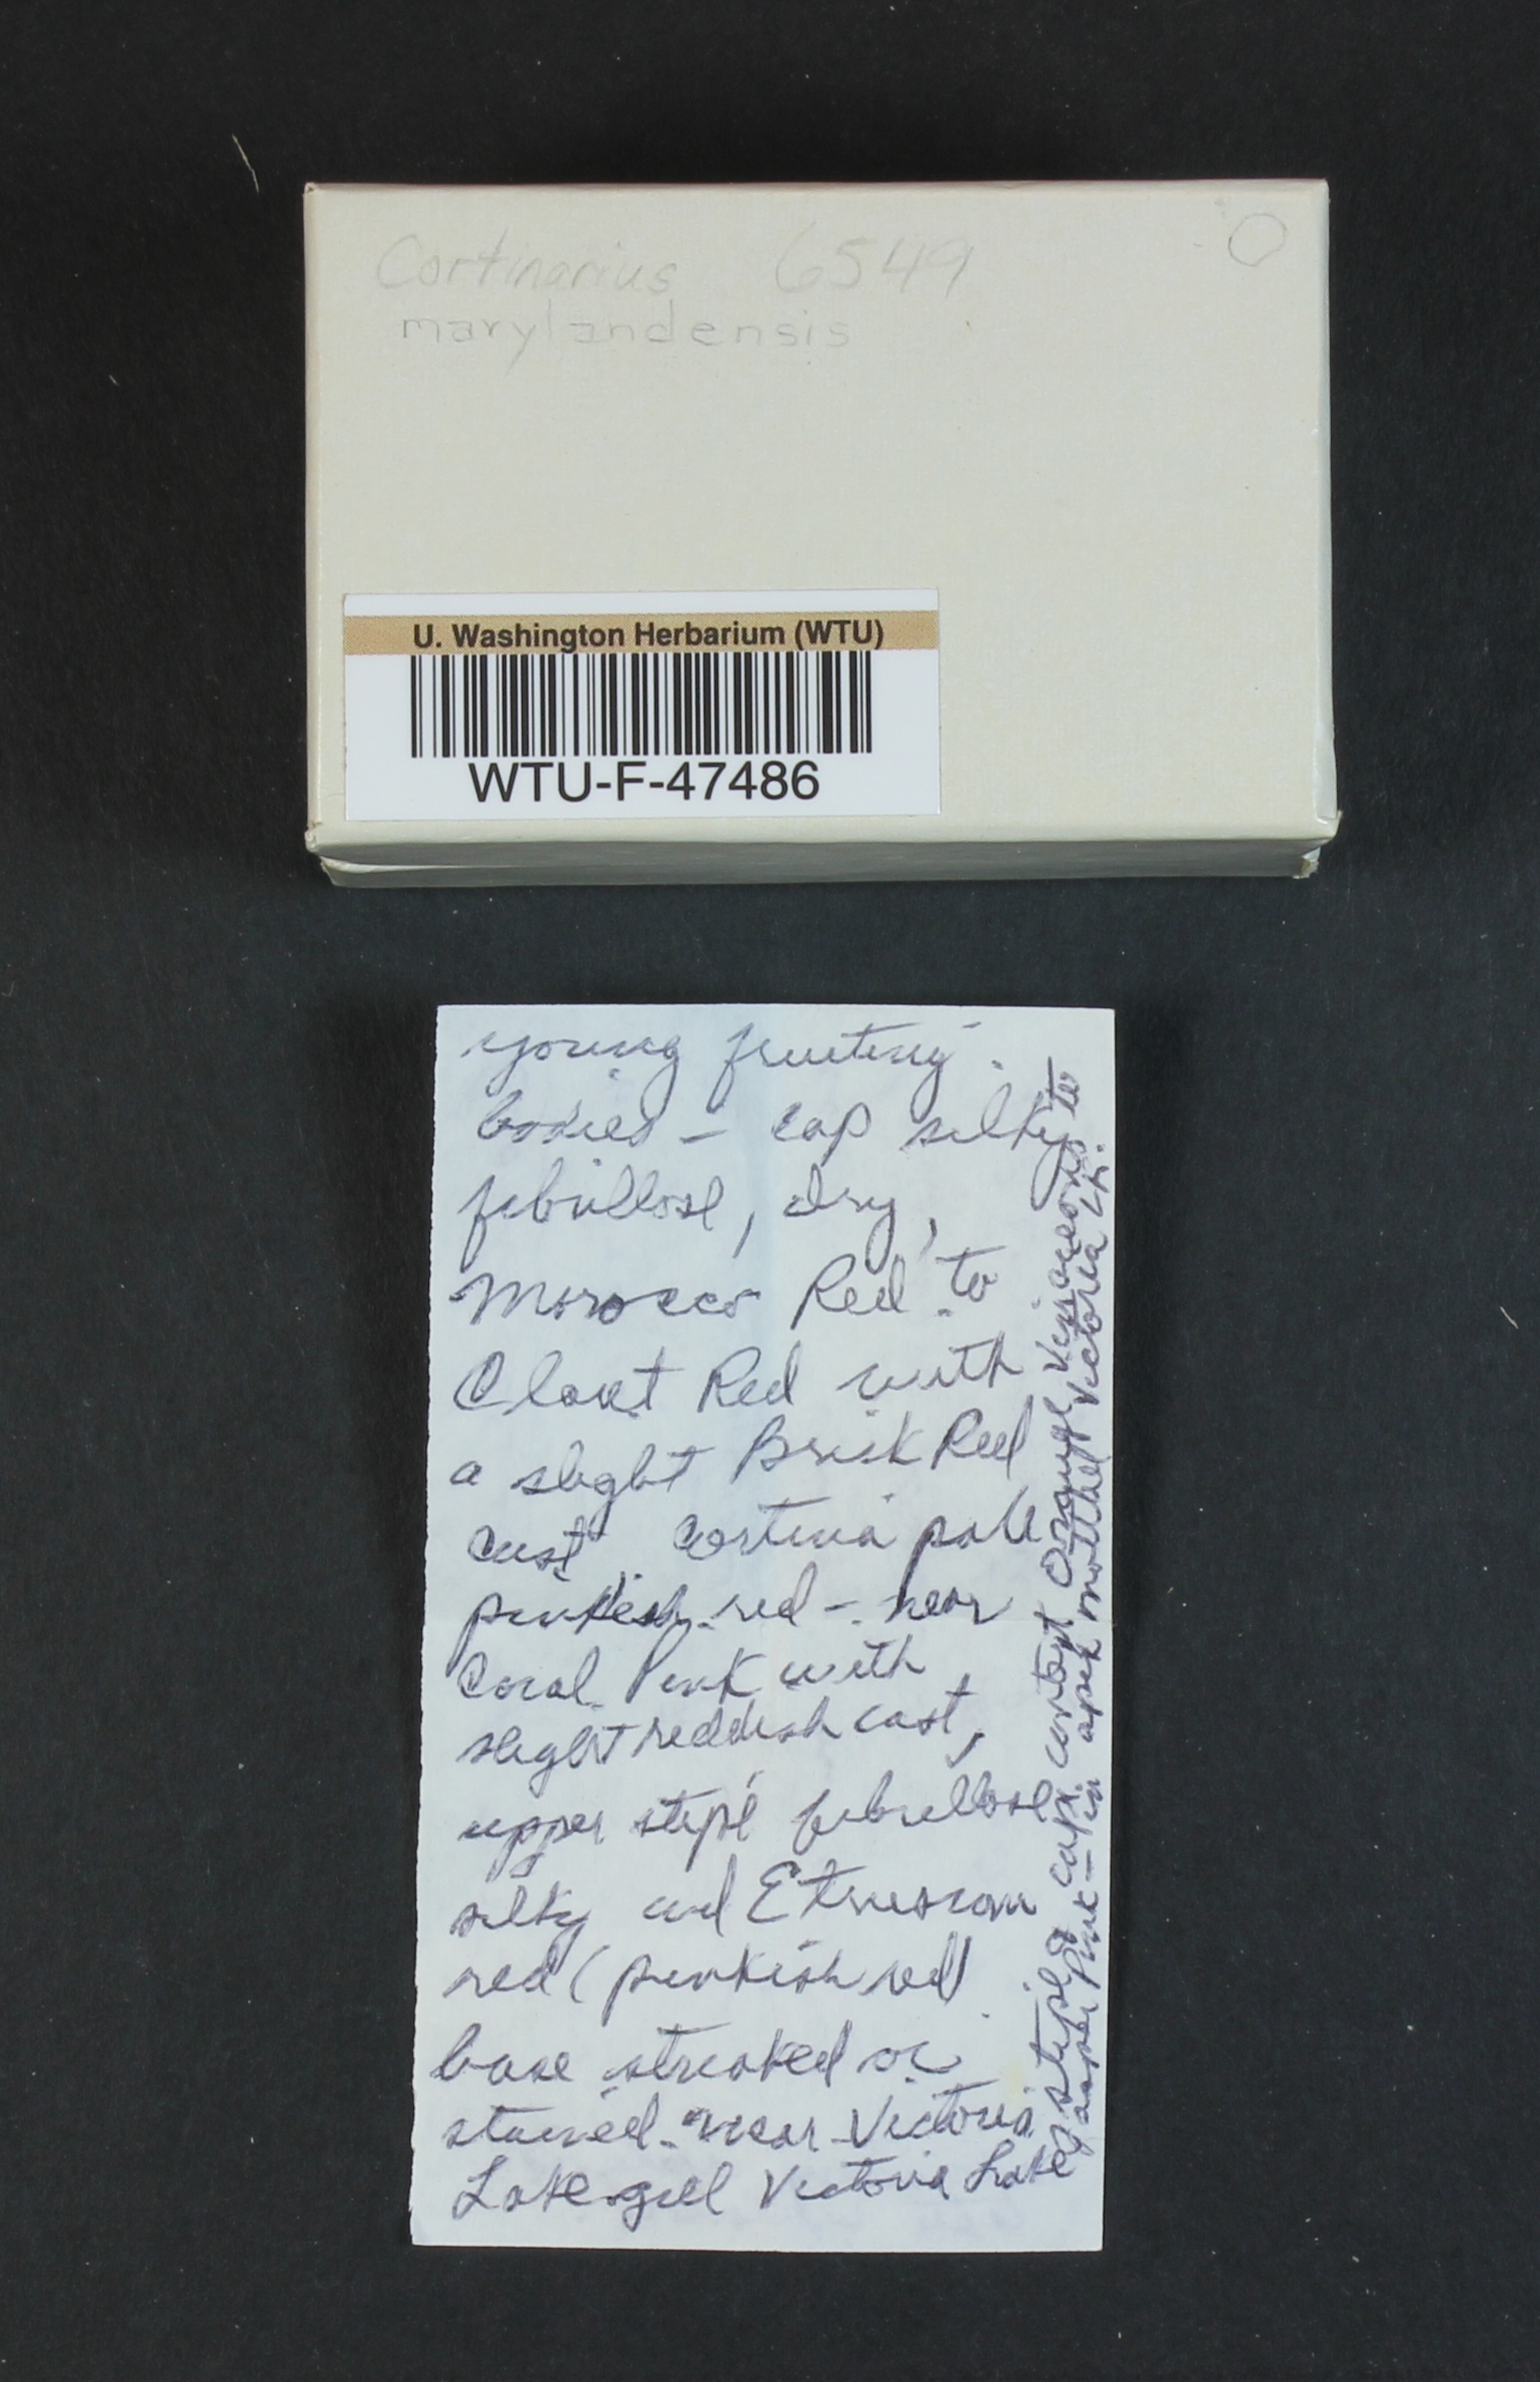 Cortinarius 6549
marylandensis
U. Washington Herbarium (WTU)
WTU-F-47486
young fruiting
bodies - cap silky to
fibrillose, dry,
Morocco Red to
Claret Red with
a slight Brick Red
cast. Cortina pale
pinkish red - near
Coral Pink with
slight reddish cast,
upper stipe fibrillose
silky and Etruscan
red (pinkish red)
base streaked or
stained near Victoria
Lake gill Victoria Lake
stipe & cap. context Orange Vinaceous
Jasper Pink - in apex mottled Victoria Lk.